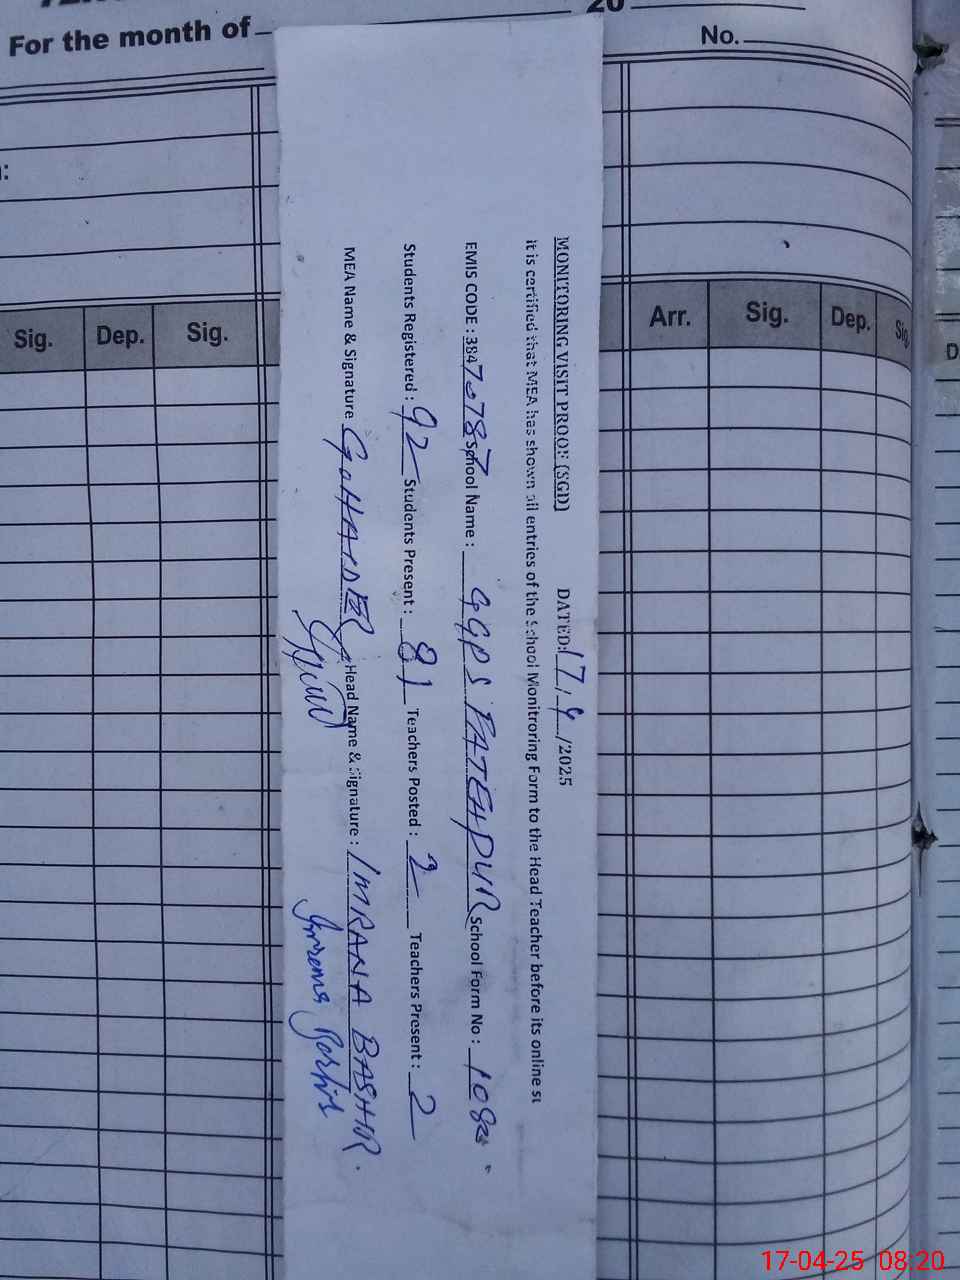 For the month of
20
No.
Sig. Dep. Sig.
Arr. Sig. Dep. Sig.
MONITORING VISIT PROOF (SGD) DATED: 17/4/2025
It is certified that MEA has shown all entries of the School Monitroring Form to the Head Teacher before its online
EMIS CODE : 38470787 School Name : GGPS FATEHPUR School Form No :
Students Registered : 92 Students Present : 81 Teachers Posted : 2 Teachers Present : 2
MEA Name & Signature G. HAIDER Head Name & Signature : IMRANA BASHIR.
17-04-25 08:20